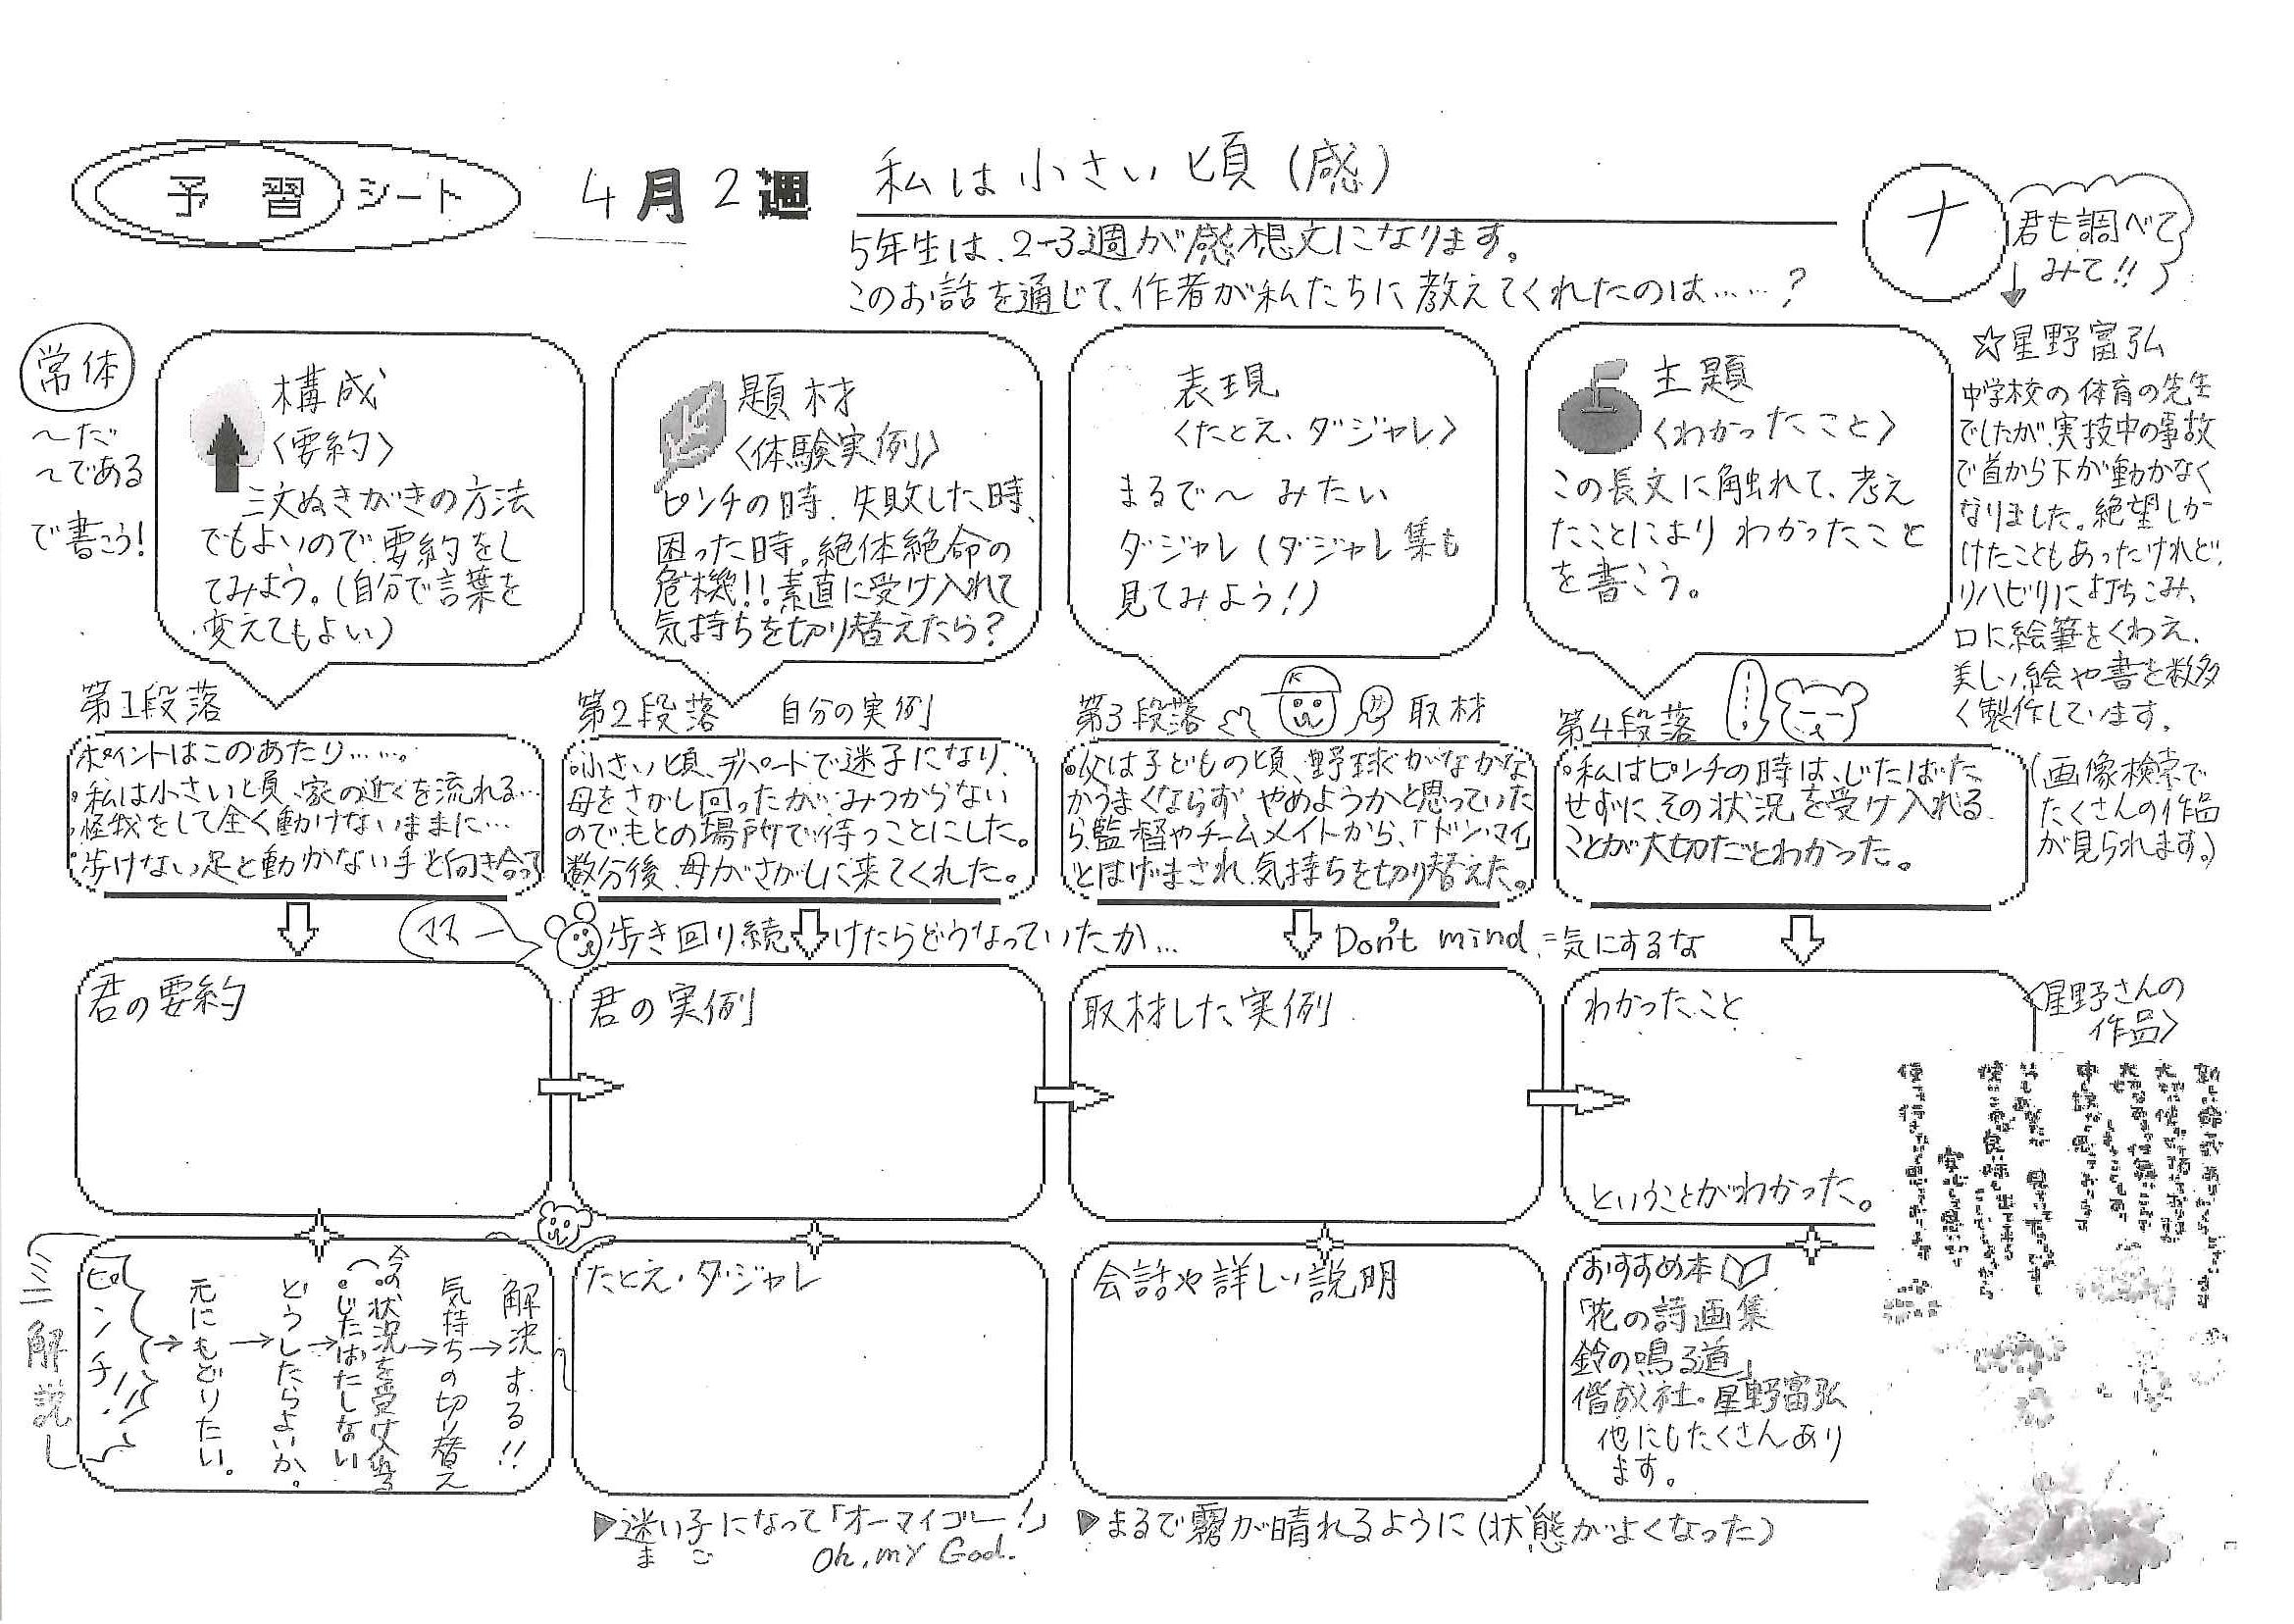 予習シート
4月2週
私は小さい頃(感)
5年生は、2-3週が感想文になります。
このお話を通じて、作者が私たちに教えてくれたのは……?
ナ
君も調べて
みて!!
常体
〜だ
〜である
で書こう!
構成
〈要約〉
三文ぬきがきの方法
でもよいので、要約をし
てみよう。(自分で言葉を
変えてもよい)
題材
〈体験実例〉
ピンチの時、失敗した時、
困った時。絶体絶命の
危機!!素直に受け入れて
気持ちを切り替えたら?
表現
〈たとえ、ダジャレ〉
まるで〜みたい
ダジャレ(ダジャレ集も
見てみよう!)
主題
〈わかったこと〉
この長文に触れて、考え
たことによりわかったこと
を書こう。
☆星野富弘
中学校の体育の先生
でしたが、実技中の事故
で首から下が動かなく
なりました。絶望しか
けたこともあったけれど、
リハビリに打ちこみ、
口に絵筆をくわえ、
美しい絵や書を数多
く製作しています。
(画像検索で
たくさんの作品
が見られます。)
第1段落
ポイントはこのあたり……。
・私は小さい頃、家の近くを流れる…
・怪我をして全く動けないままに…
・歩けない足と動かない手と向き合って
第2段落 自分の実例
・小さい頃、デパートで迷子になり、
母をさがし回ったが、みつからない
のでもとの場所で待つことにした。
数分後、母がさがしに来てくれた。
第3段落 取材
K
・父は子どもの頃、野球がなかな
かうまくならず、やめようかと思っていた
ら、監督やチームメイトから、「ドンマイ」
とはげまされ、気持ちを切り替えた。
第4段落
・私はピンチの時は、じたばた
せずに、その状況を受け入れる
ことが大切だとわかった。
ママー
歩き回り続けたらどうなっていたか…
Don't mind.=気にするな
君の要約
君の実例
取材した実例
わかったこと
ということがわかった。
〈星野さんの
作品〉
解説
ピンチ!!
→元にもどりたい。
→どうしたらよいか。
→今の状況を受け入れる
(・じたばたしない
→気持ちの切り替え
→解決する!!
たとえ・ダジャレ
会話や詳しい説明
おすすめ本
「花の詩画集
鈴の鳴る道」
偕成社・星野富弘
他にもたくさんあり
ます。
▶迷い子になって「オーマイゴー!」
ま ご
Oh, my God.
▶まるで霧が晴れるように(状態がよくなった)